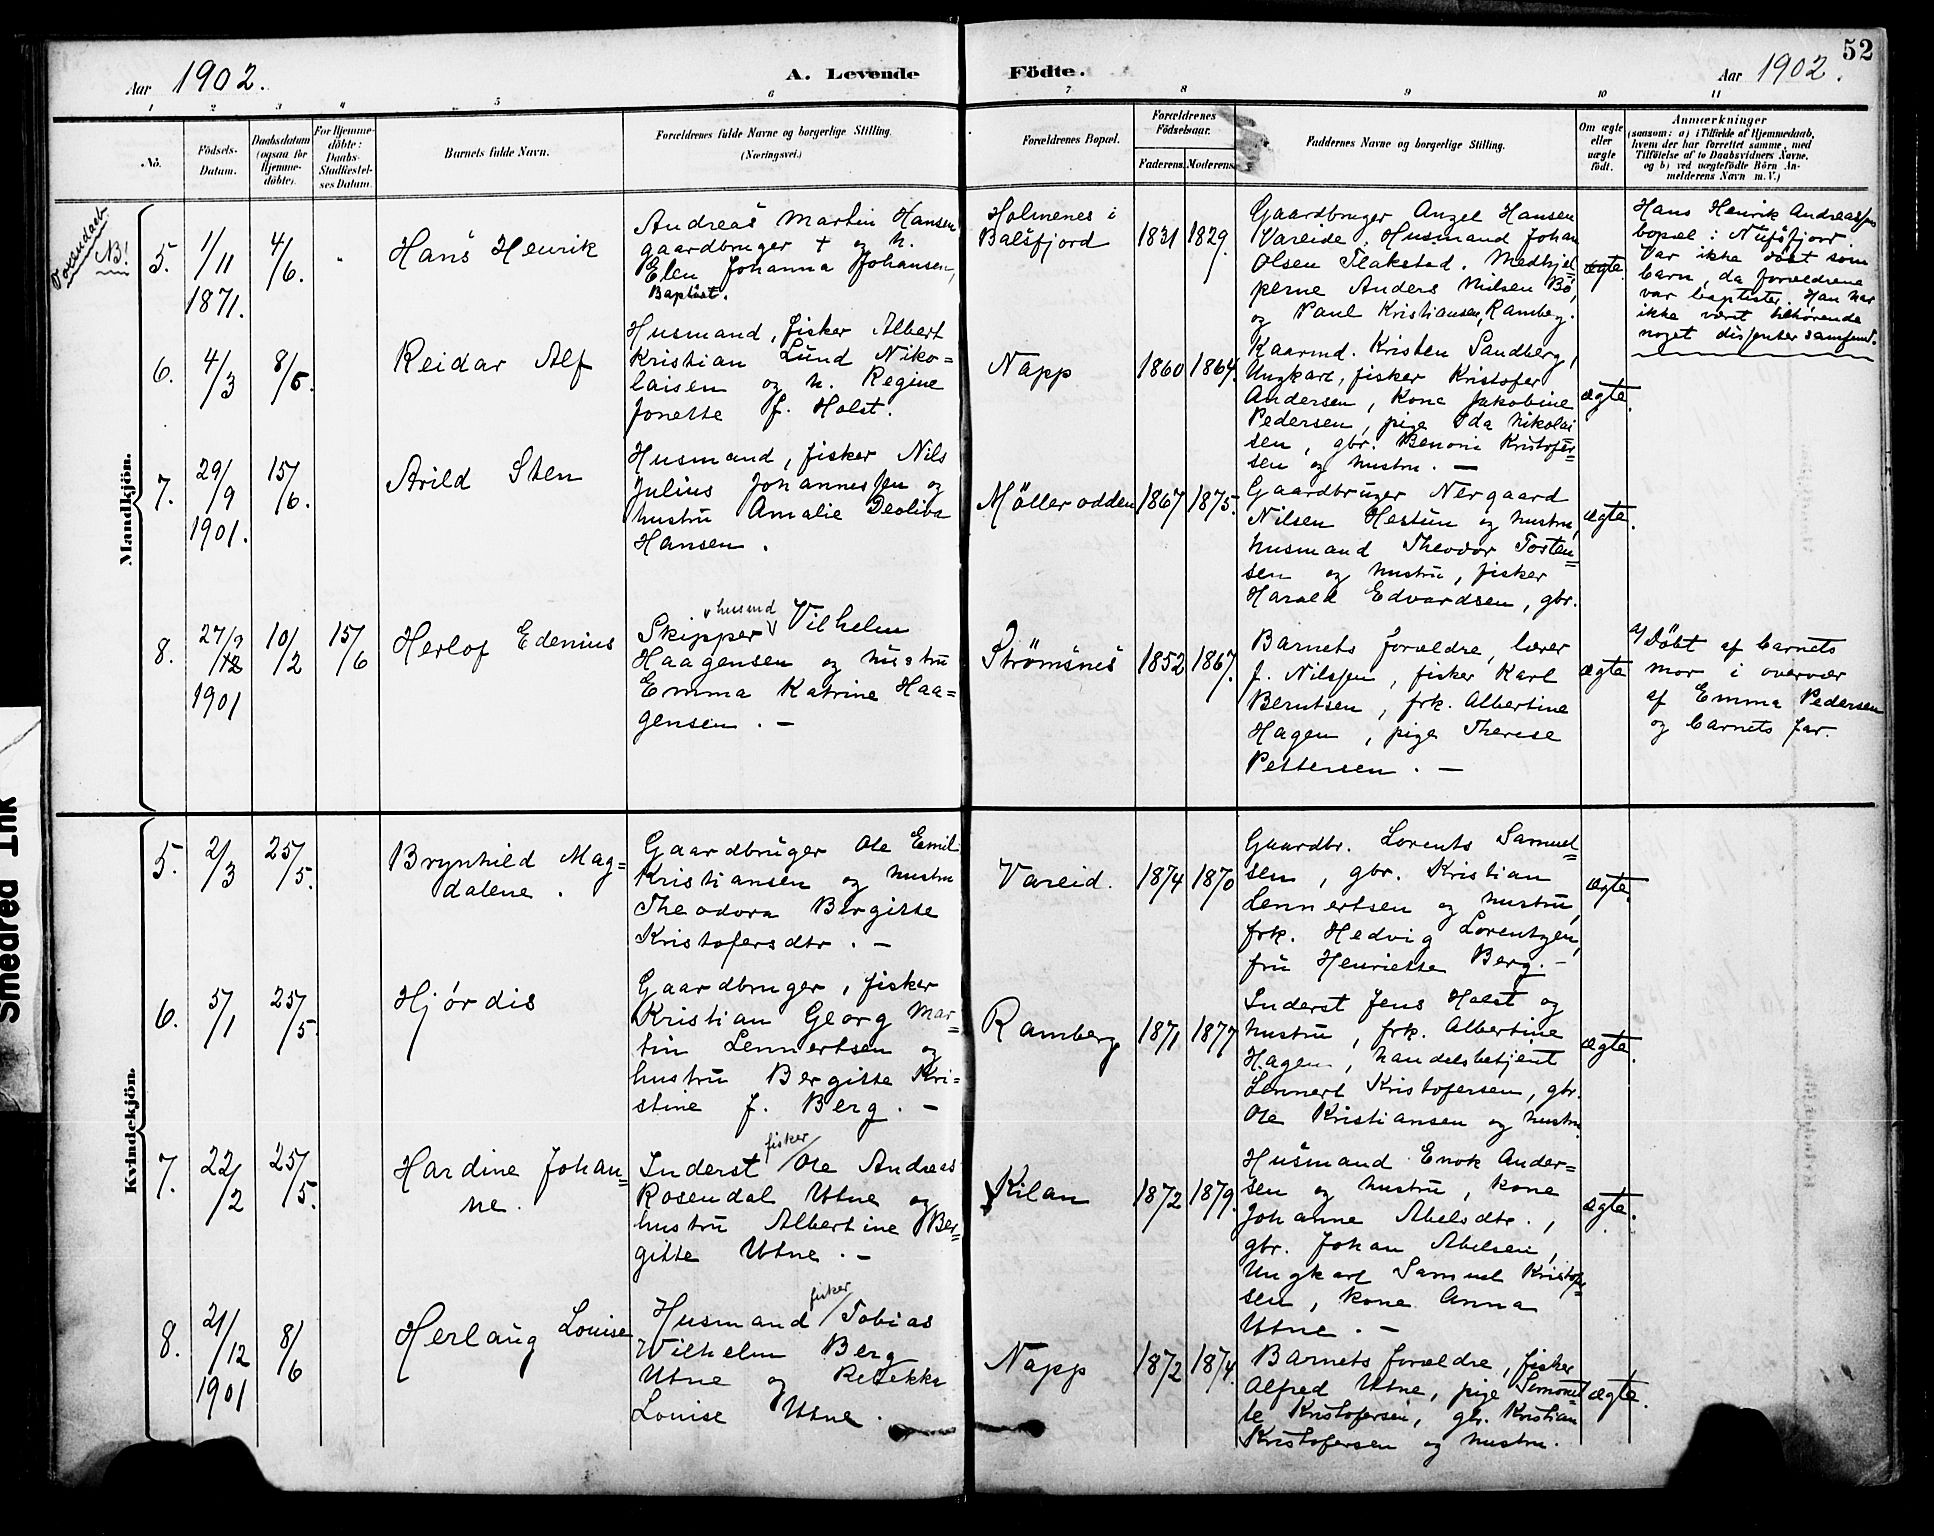 52
Aar 1902.
A. Levende
Födte.
Aar 1902.
1 2 3 4 5 6 7 8 9 10 11
No.
Födsels-
Datum.
Daabsdatum
(ogsaa for
Hjemme-
döbte).
For Hjemme-
döbte:
Daabs-
Stadfæstel-
ses Datum.
Barnets fulde Navn.
Forældrenes fulde Navne og borgerlige Stilling.
(Næringsvei.)
Forældrenes Bopæl.
Forældrenes
Födselsaar.
Faderens. Moderens.
Faddernes Navne og borgerlige Stilling.
Om ægte
eller
uægte
födt.
Anmærkninger
(saasom: a) i Tilfælde af Hjemmedaab,
hvem der har forrettet samme, med
Tilföielse af to Daabsvidners Navne,
og b) ved uægtefödte Börn An-
melderens Navn m. V.)
Mandkjön.
Voxendaab
NB!
5.
1/11
1871.
4/6.
Hans Henrik
Andreas Martin Hansen
gaardbruger + og h.
Elen Johanna Johansen,
Baptist.
Holmenes i
Balsfjord
1831 1829.
Gaardbruger Angel Hansen
Vareide, Husmand Johan
Olsen Flakstad. Medhjel=
perne Anders Nilsen Bö,
og Paul Kristiansen, Ramberg.
ægte.
Hans Henrik Andreassen
bopæl: Nufsfjord.
Var ikke döbt som
barn, da forældrene
var baptister. Han har
ikke været tilhörende
noget dissentersamfund.
6.
4/3
8/5.
Reidar Alf
Husmand, fisker Albert
Kristian Lund Niko=
laisen og h. Regine
Jonette f. Holst.
Napp
1860 1864.
Kaarmd. Kristen Sandberg,
Ungkarl, fisker Kristofer
Andersen, Kone Jakobine
Pedersen, pige Ida Nikolai
sen, gbr. Benoni Kristofer=
sen og hustru. —
ægte.
7.
29/9
1901.
15/6.
Arild Sten
Husmand, fisker Nils
Julius Johannessen og
hustru Amalie Deoliva
Hansen.
Möllerodden
1867 1875.
Gaardbruger Nergaard
Nilsen Hestun og hustru,
husmand Theodor Torsten=
sen og hustru, fisker
Harald Edvardsen, gbr.
ægte.
8.
27/12
1901
10/2
15/6
Herlof Edenius
husmd
Skipper Vilhelm
Haagensen og hustru
Emma Katrine Haa=
gensen. —
Strömsnes
1852 1867.
Barnets forældre, lærer
J. Nilssen, fisker Karl
Berntsen, frk. Albertine
Hagen, pige Therese
Pettersen. —
ægte
a/ Döbt af barnets
mor i overvær
af Emma Pedersen
og barnets far.
Kvindekjön.
5.
2/3
25/5.
Brynhild Mag=
dalene.
Gaardbruger Ole Emil
Kristiansen og hustru
Theodora Bergitte
Kristofersdtr. —
Vareid.
1874 1870
Gaardbr. Lorents Samuel=
sen, gbr. Kristian
Lennertsen og hustru,
frk. Hedvig Lorentzen,
fru Henriette Berg. —
ægte.
6.
5/1
25/5.
Hjördis
Gaardbruger, fisker
Kristian Georg Mar=
tin Lennertsen og
hustru Bergitte Kri=
stine f. Berg. —
Ramberg
1871 1877
Inderst Jens Holst og
hustru, frk. Albertine
Hagen, handelsbetjent
Lennert Kristofersen, gbr.
Ole Kristiansen og hustru.
ægte.
7.
22/2
25/5.
Hardine Johan=
ne.
fisker
Inderst / Ole Andreas
Rosendal Utne og
hustru Albertine Ber=
gitte Utne. —
Kilan
1872 1879.
Husmand Enok Ander=
sen og hustru, kone
Johanne Abelsdtr.,
gbr. Johan Abelsen,
Ungkarl Samuel Kristofer
sen, kone Anna
Utne. —
ægte.
8.
21/12
1901
8/6
Herlaug Louise
fisker
Husmand / Tobias
Wilhelm Berg
Utne og Rebekka
Louise Utne.
Napp
1872 1874.
Barnets forældre, fisker
Alfred Utne, pige Simonet
te Kristofersen, gbr. Kristian
Kristofersen og hustru.
ægte.
Smeared Ink